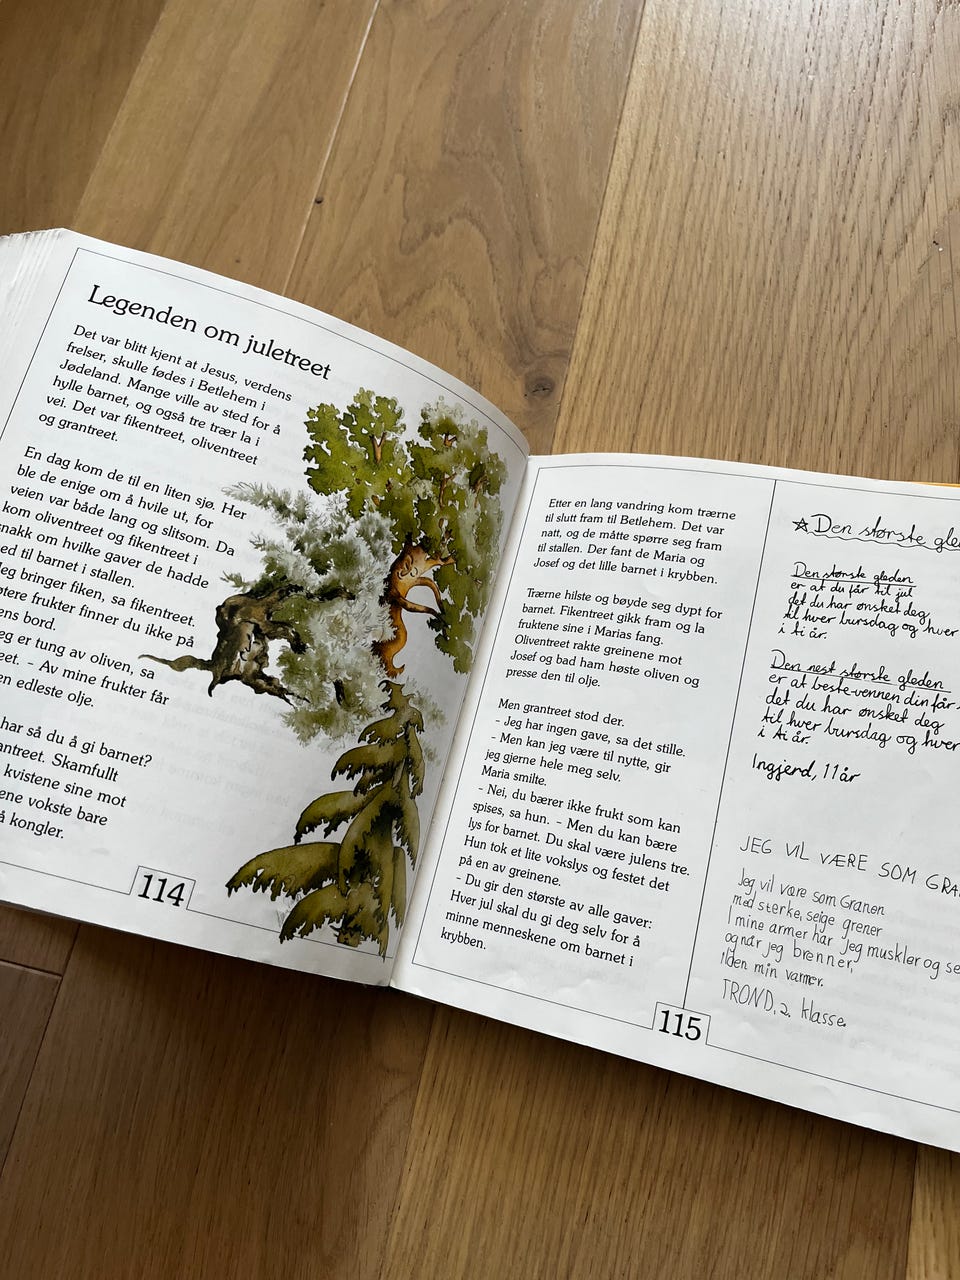 Legenden om juletreet
Det var blitt kjent at Jesus, verdens
frelser, skulle fødes i Betlehem i
Jødeland. Mange ville av sted for å
hylle barnet, og også tre trær la i
vei. Det var fikentreet, oliventreet
og grantreet.
En dag kom de til en liten sjø. Her
ble de enige om å hvile ut, for
veien var både lang og slitsom. Da
kom oliventreet og fikentreet i
snakk om hvilke gaver de hadde
ed til barnet i stallen.
Jeg bringer fiken, sa fikentreet.
øtere frukter finner du ikke på
ens bord.
eg er tung av oliven, sa
eet. - Av mine frukter får
en edleste olje.
har så du å gi barnet?
antreet. Skamfullt
kvistene sine mot
ene vokste bare
å kongler.
114
Etter en lang vandring kom trærne
til slutt fram til Betlehem. Det var
natt, og de måtte spørre seg fram
til stallen. Der fant de Maria og
Josef og det lille barnet i krybben.
Trærne hilste og bøyde seg dypt for
barnet. Fikentreet gikk fram og la
fruktene sine i Marias fang.
Oliventreet rakte greinene mot
Josef og bad ham høste oliven og
presse den til olje.
Men grantreet stod der.
- Jeg har ingen gave, sa det stille.
- Men kan jeg være til nytte, gir
jeg gjerne hele meg selv.
Maria smilte.
- Nei, du bærer ikke frukt som kan
spises, sa hun. - Men du kan bære
lys for barnet. Du skal være julens tre.
Hun tok et lite vokslys og festet det
på en av greinene.
- Du gir den største av alle gaver:
Hver jul skal du gi deg selv for å
minne menneskene om barnet i
krybben.
115
Den største gle
Den største gleden
er at du får til jul
det du har ønsket deg
til hver bursdag og hver
i ti år.
Den nest største gleden
er at beste-vennen din får
det du har ønsket deg
til hver bursdag og hver
i ti år.
Ingjerd, 11 år
JEG VIL VÆRE SOM GRA
Jeg vil være som Granen
med sterke, seige grener
I mine armer har jeg muskler og se
og når jeg brenner,
ilden min varmer.
TROND, 2. klasse.